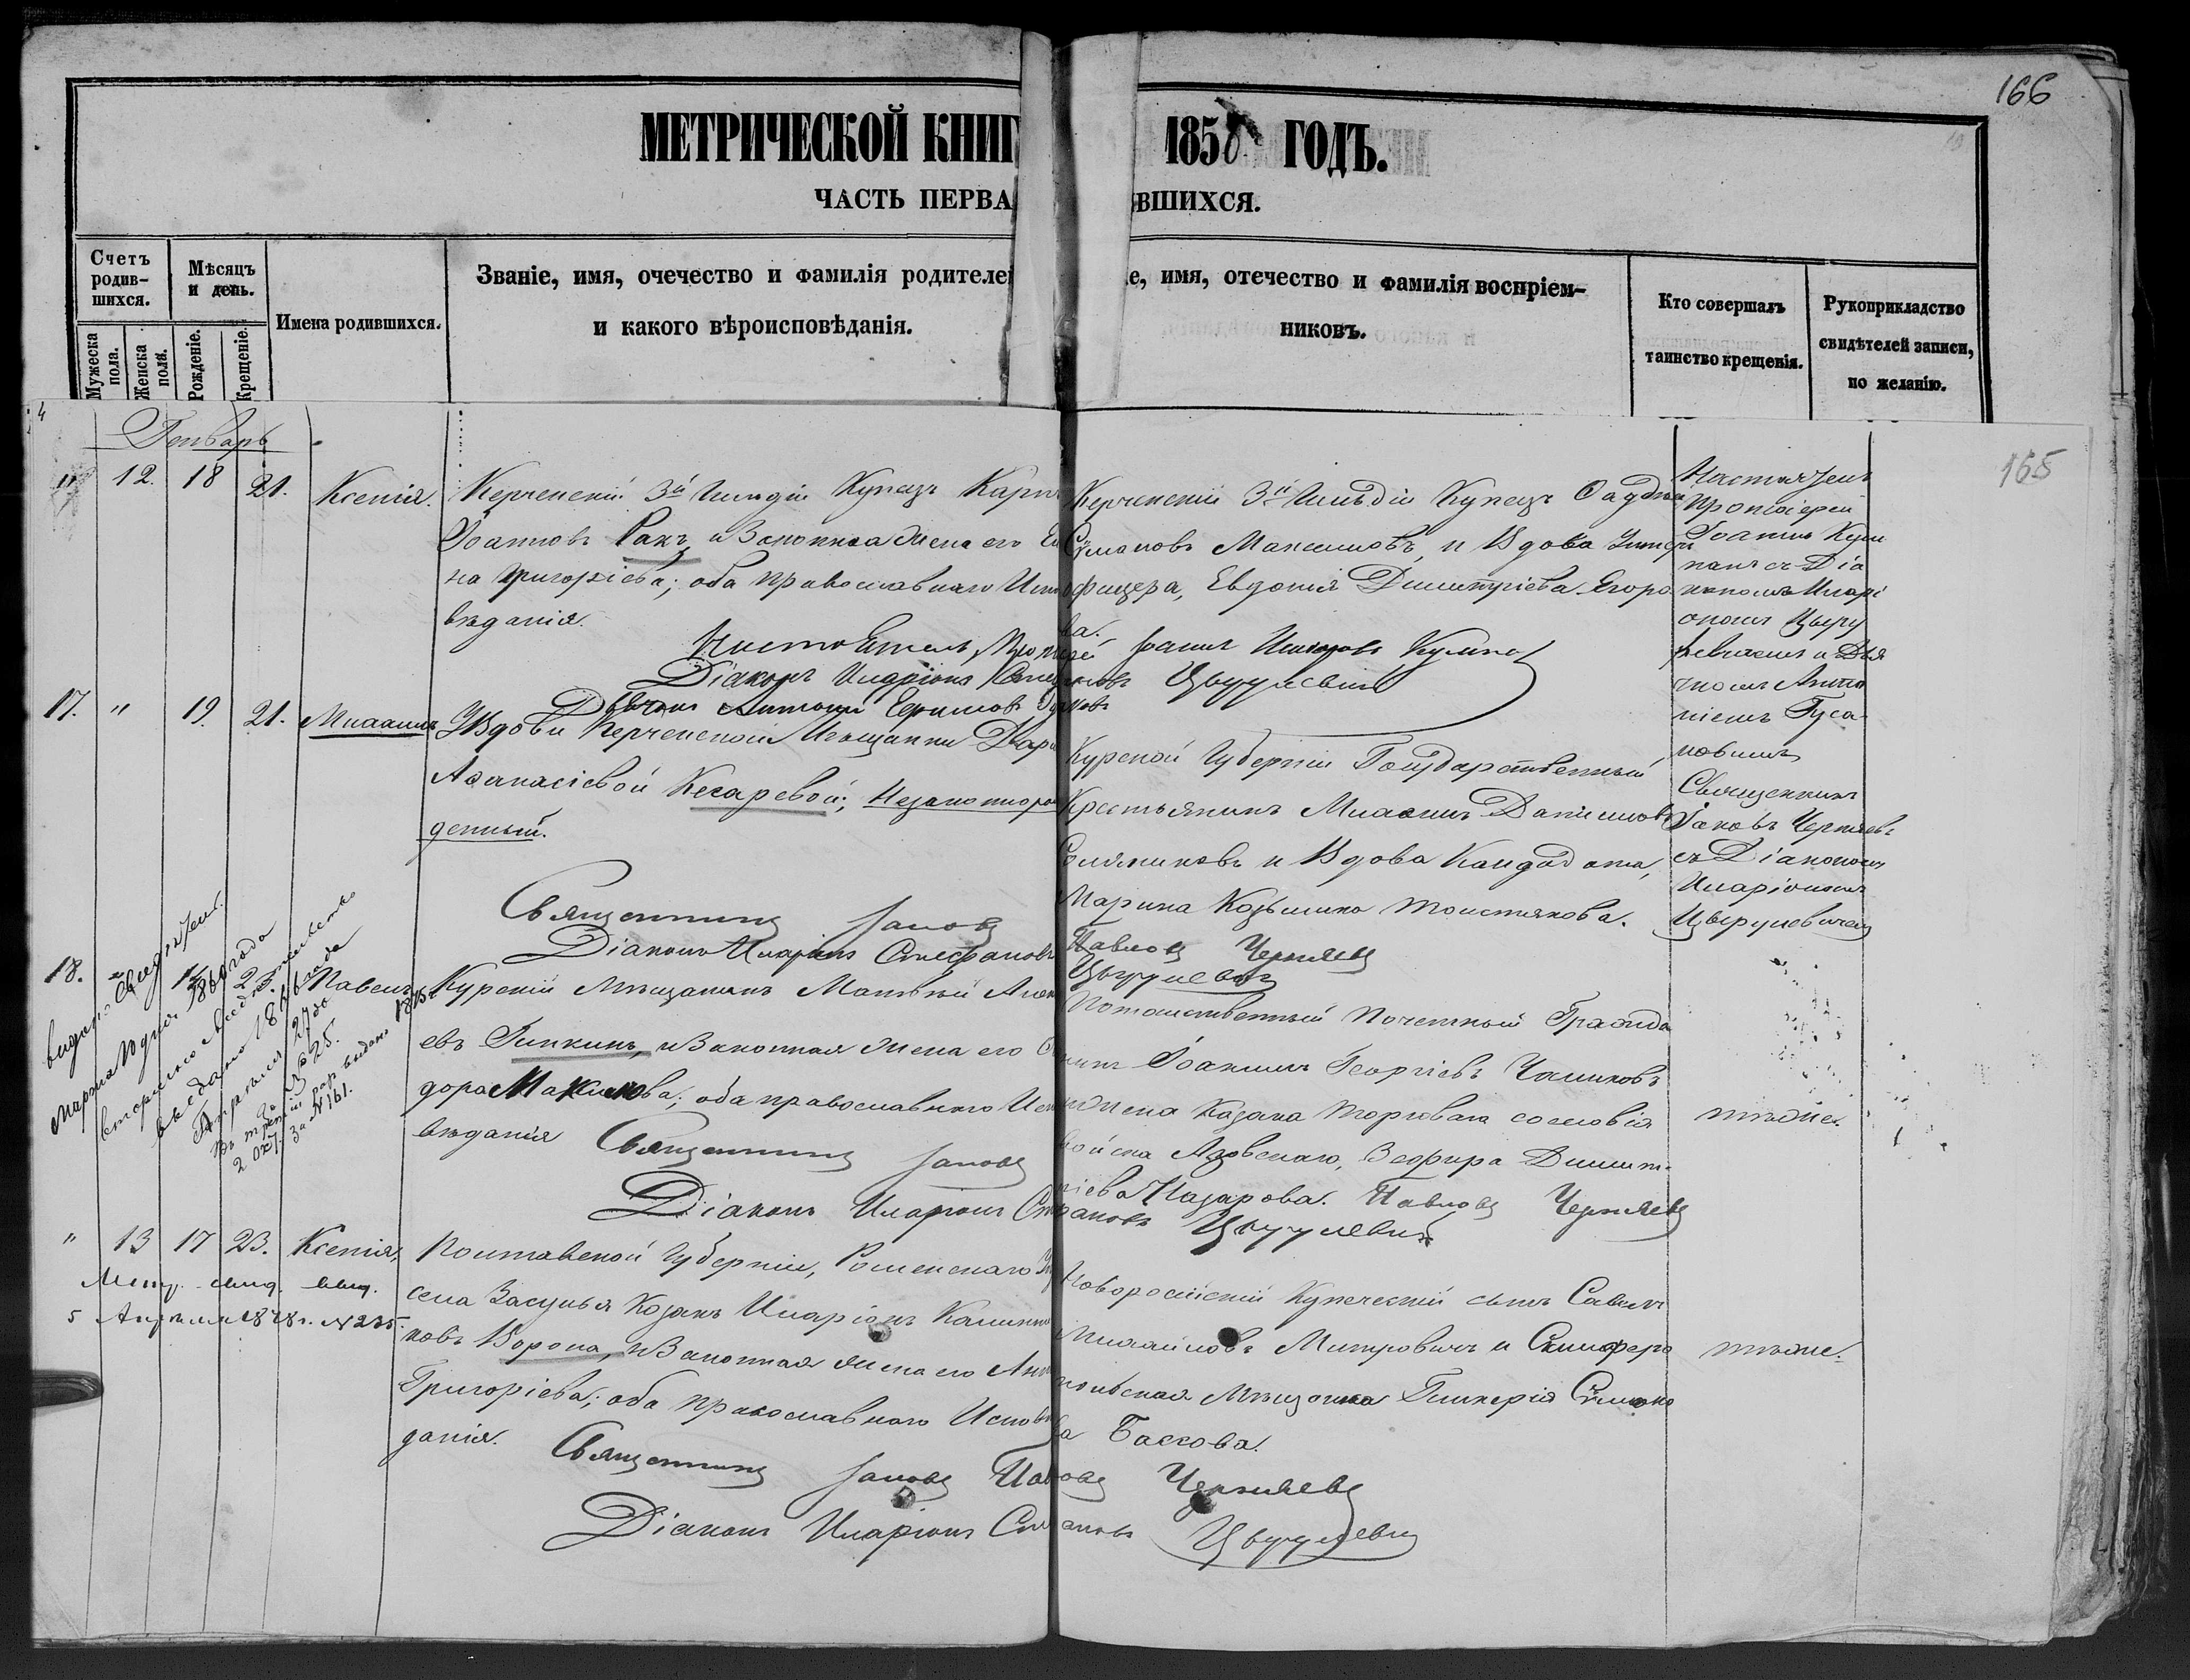 166
МЕТРИЧЕСКОЙ КНИГ 1858 ГОДЪ.
ЧАСТЬ ПЕРВА ВШИХСЯ.
Счетъ родив-шихся.
Мужеска пола.
Женска пола.
Мѣсяцъ и день.
Рожденіе.
Крещеніе.
Имена родившихся.
Званіе, имя, очечество и фамилія родителей
и какого вѣроисповѣданія.
е, имя, отечество и фамилія воспріем-
никовъ.
Кто совершалъ
таинство крещенія.
Рукоприкладство
свидѣтелей записи,
по желанію.
165
Генварь
" 12. 18 21. Ксенія.
Керченскій 3й Гильдіи Купецъ Карп
Іоанновъ Ракъ, и Законная жена его Ек
на Григоріева; оба православнаго Испо
вѣданія.
Керченскій 3й Гильдіи Купецъ
Симоновъ Максимовъ, и Вдова Унтеръ
фицера, Евдокія Димитріева Егоро
ва.
Настоятель
Протоіерей
Іоаннъ Кум
панъ съ Діа
кономъ Илари
ономъ Цыру
левичемъ и Дья
чкомъ Анто
ніемъ Гуса
ковымъ
Настоятель Протоіерей Іоаннъ
Діаконъ Иларіонъ Стефановъ Цырулевичъ
Дьячекъ Антоній
17. " 19. 21. Михаилъ
Вдовы Керченской Мѣщанки Дарі
Афанасіевой Кесаревой; Незаконнорож
денный.
Курской Губерніи Государственный
Крестьянинъ Михаилъ Даниловъ
и Вдова Кандидата,
Марина Козьмина Толстякова.
Священникъ
Іаковъ Черняевъ
съ Діакономъ
Иларіономъ
Цырулевичемъ
Священникъ Іаковъ Павловъ Черняевъ
Діаконъ Иларіонъ Стефановъ Цырулевичъ
18. " Павелъ
Курскій Мѣщанинъ Матвѣй Алек
евъ Гипкинъ, и Законная жена его
дора Максимова; оба православнаго Испо
вѣданія
Потомственный Почетный Гражда
нинъ Іоакимъ Георгіевъ Чаликовъ
и жена Казака Торговаго сословія
войска Азовскаго, Зефира Димит-
ріева Назарова.
тѣже.
Священникъ Іаковъ Павловъ Черняевъ
Діаконъ Иларіонъ Стефановъ Цырулевичъ
" 13 17 23. Ксенія,
Полтавской Губерніи, Роменскаго У
села Засулья Козакъ Иларіонъ Калинни
ковъ Ворона, и Законная жена его Анн
Григоріева; оба православнаго Исповѣ
данія.
Новоросійскій Купеческій сынъ Савелъ
Михайловъ Митровичъ и Симферо
польская Мѣщанка Гликерія Симоно
ва Баскова.
тѣже.
5 Апрѣля 1878 г. № 235.
Священникъ Іаковъ Павловъ Черняевъ
Діаконъ Иларіонъ Стефановъ Цырулевичъ